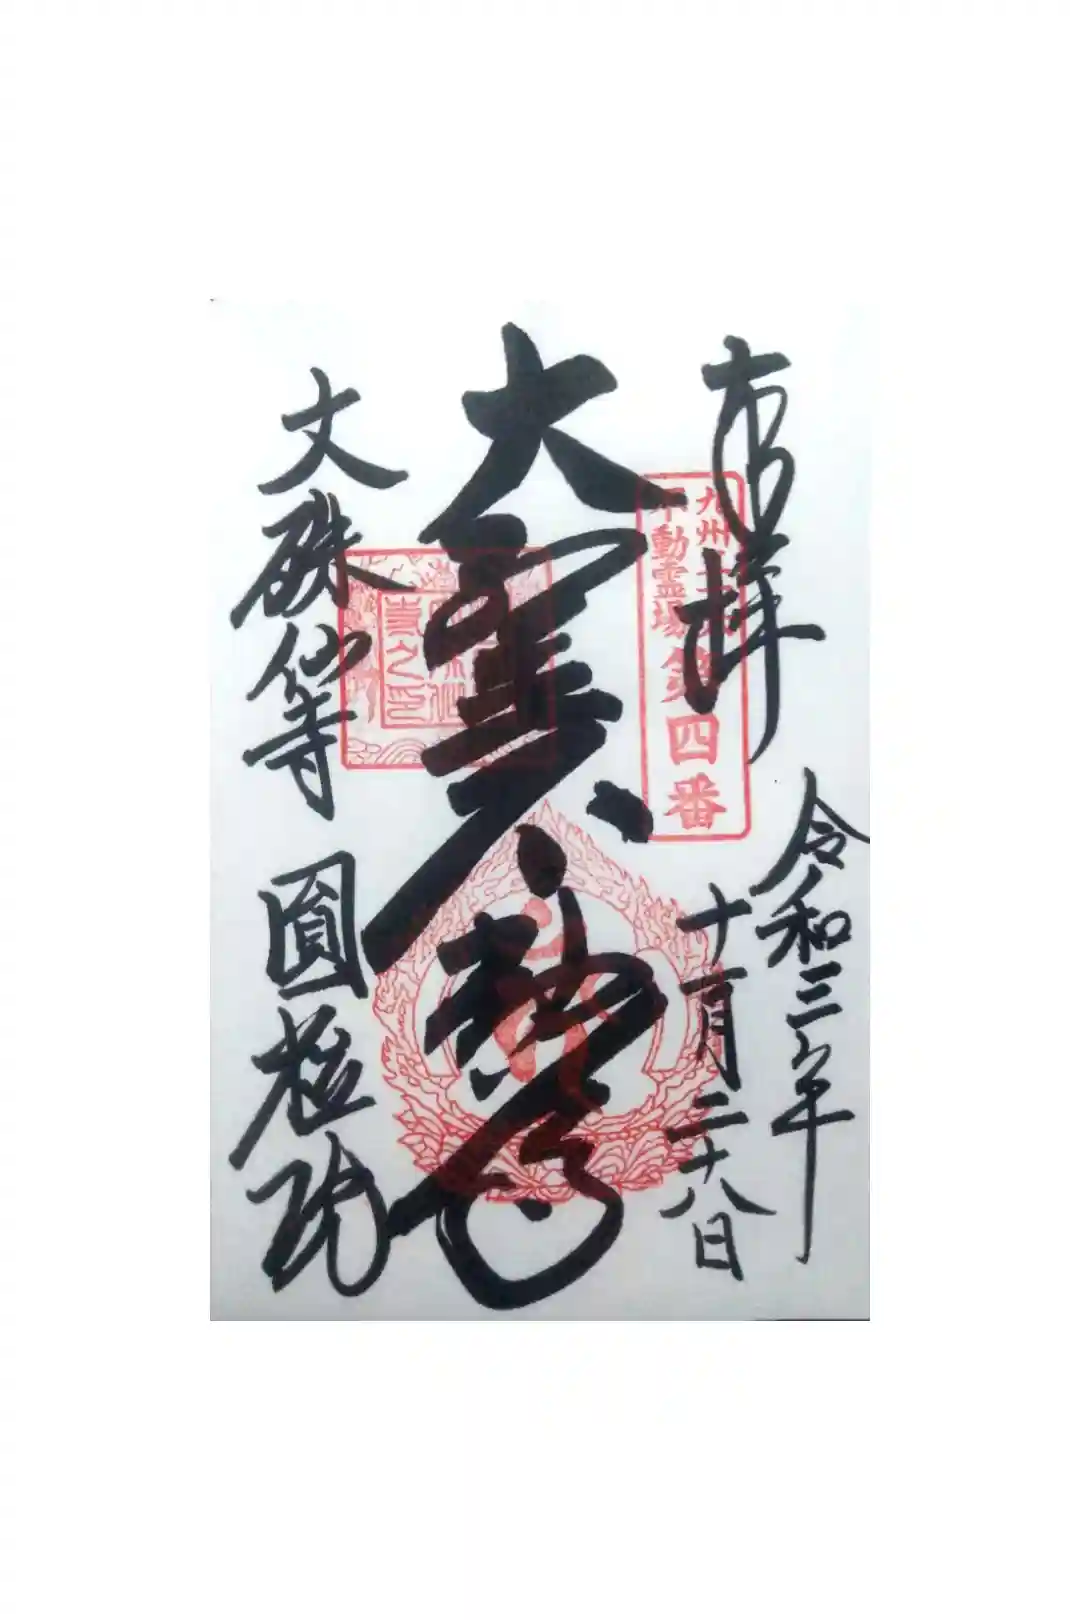 奉拝
令和三年
十一月二十八日
九州三十六
不動霊場
第四番
大聖不動尊
文殊仙寺
圓